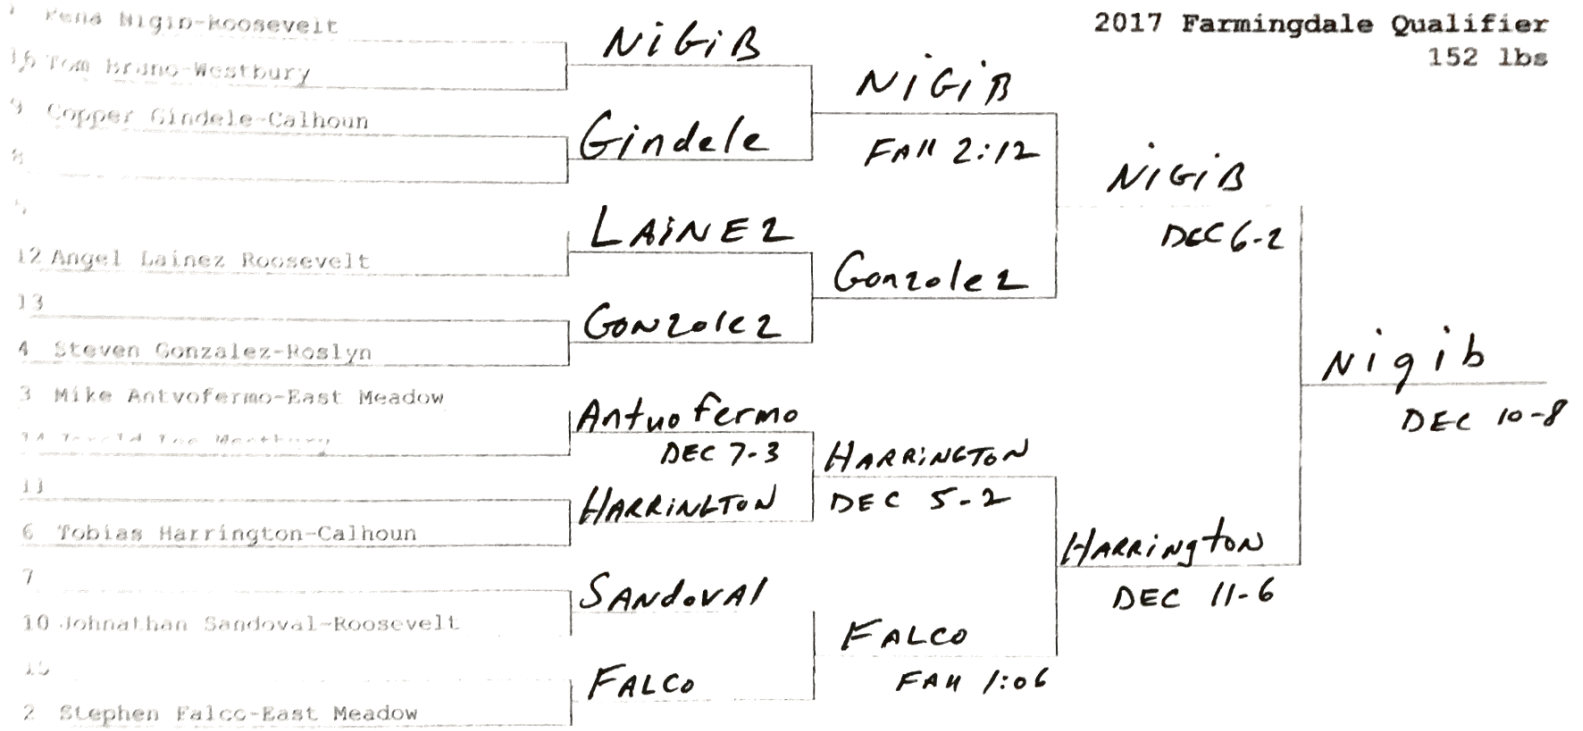 2017 Farmingdale Qualifier
152 lbs
Nigib-Roosevelt
16 Tom Bruno-Westbury
9 Copper Gindele-Calhoun
8
12 Angel Lainez Roosevelt
13
4 Steven Gonzalez-Roslyn
3 Mike Antvofermo-East Meadow
14
11
6 Tobias Harrington-Calhoun
7
10 Johnathan Sandoval-Roosevelt
15
2 Stephen Falco-East Meadow
NiGiB
Gindele
LAiNEZ
GONZolez
Antuofermo
DEC 7-3
HARRiNGTON
SANdoVAl
FALCO
NiGiB
FAll 2:12
Gonzolez
HARRiNGTON
DEC 5-2
FALCO
FAll 1:06
NiGiB
DEC 6-2
HARRington
DEC 11-6
Nigib
DEC 10-8